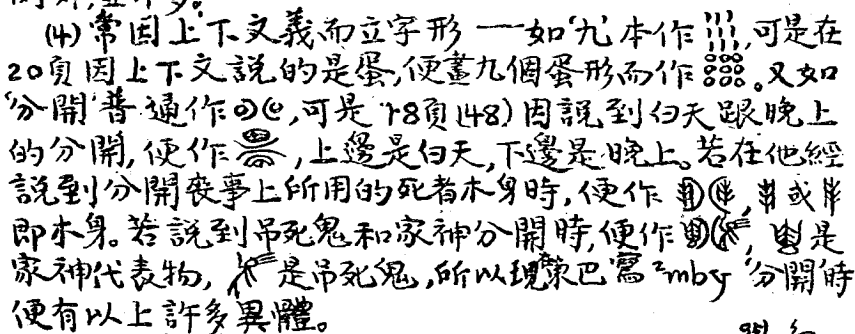 (4) 常因上下文義而立字形——如‘九’本作,可是在
20頁因上下文説的是蛋,便畫九個蛋形而作。又如
‘分開’普通作,可是18頁(48)因説到白天跟晚上
的分開,便作,上邊是白天,下邊是晚上。若在他經
説到分開喪事上所用的死者木身時,便作,或
即木身。若説到吊死鬼和家神分開時,便作,是
家神代表物,是吊死鬼,所以現策巴寫²mbɣ‘分開’時
便有以上許多異體。